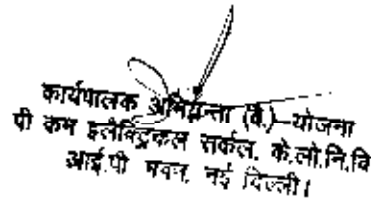 कार्यपालक अभियन्ता (वै.) योजना
पी कम इलैक्ट्रिकल सर्कल, के.लो.नि.वि
आई.पी भवन, नई दिल्ली।